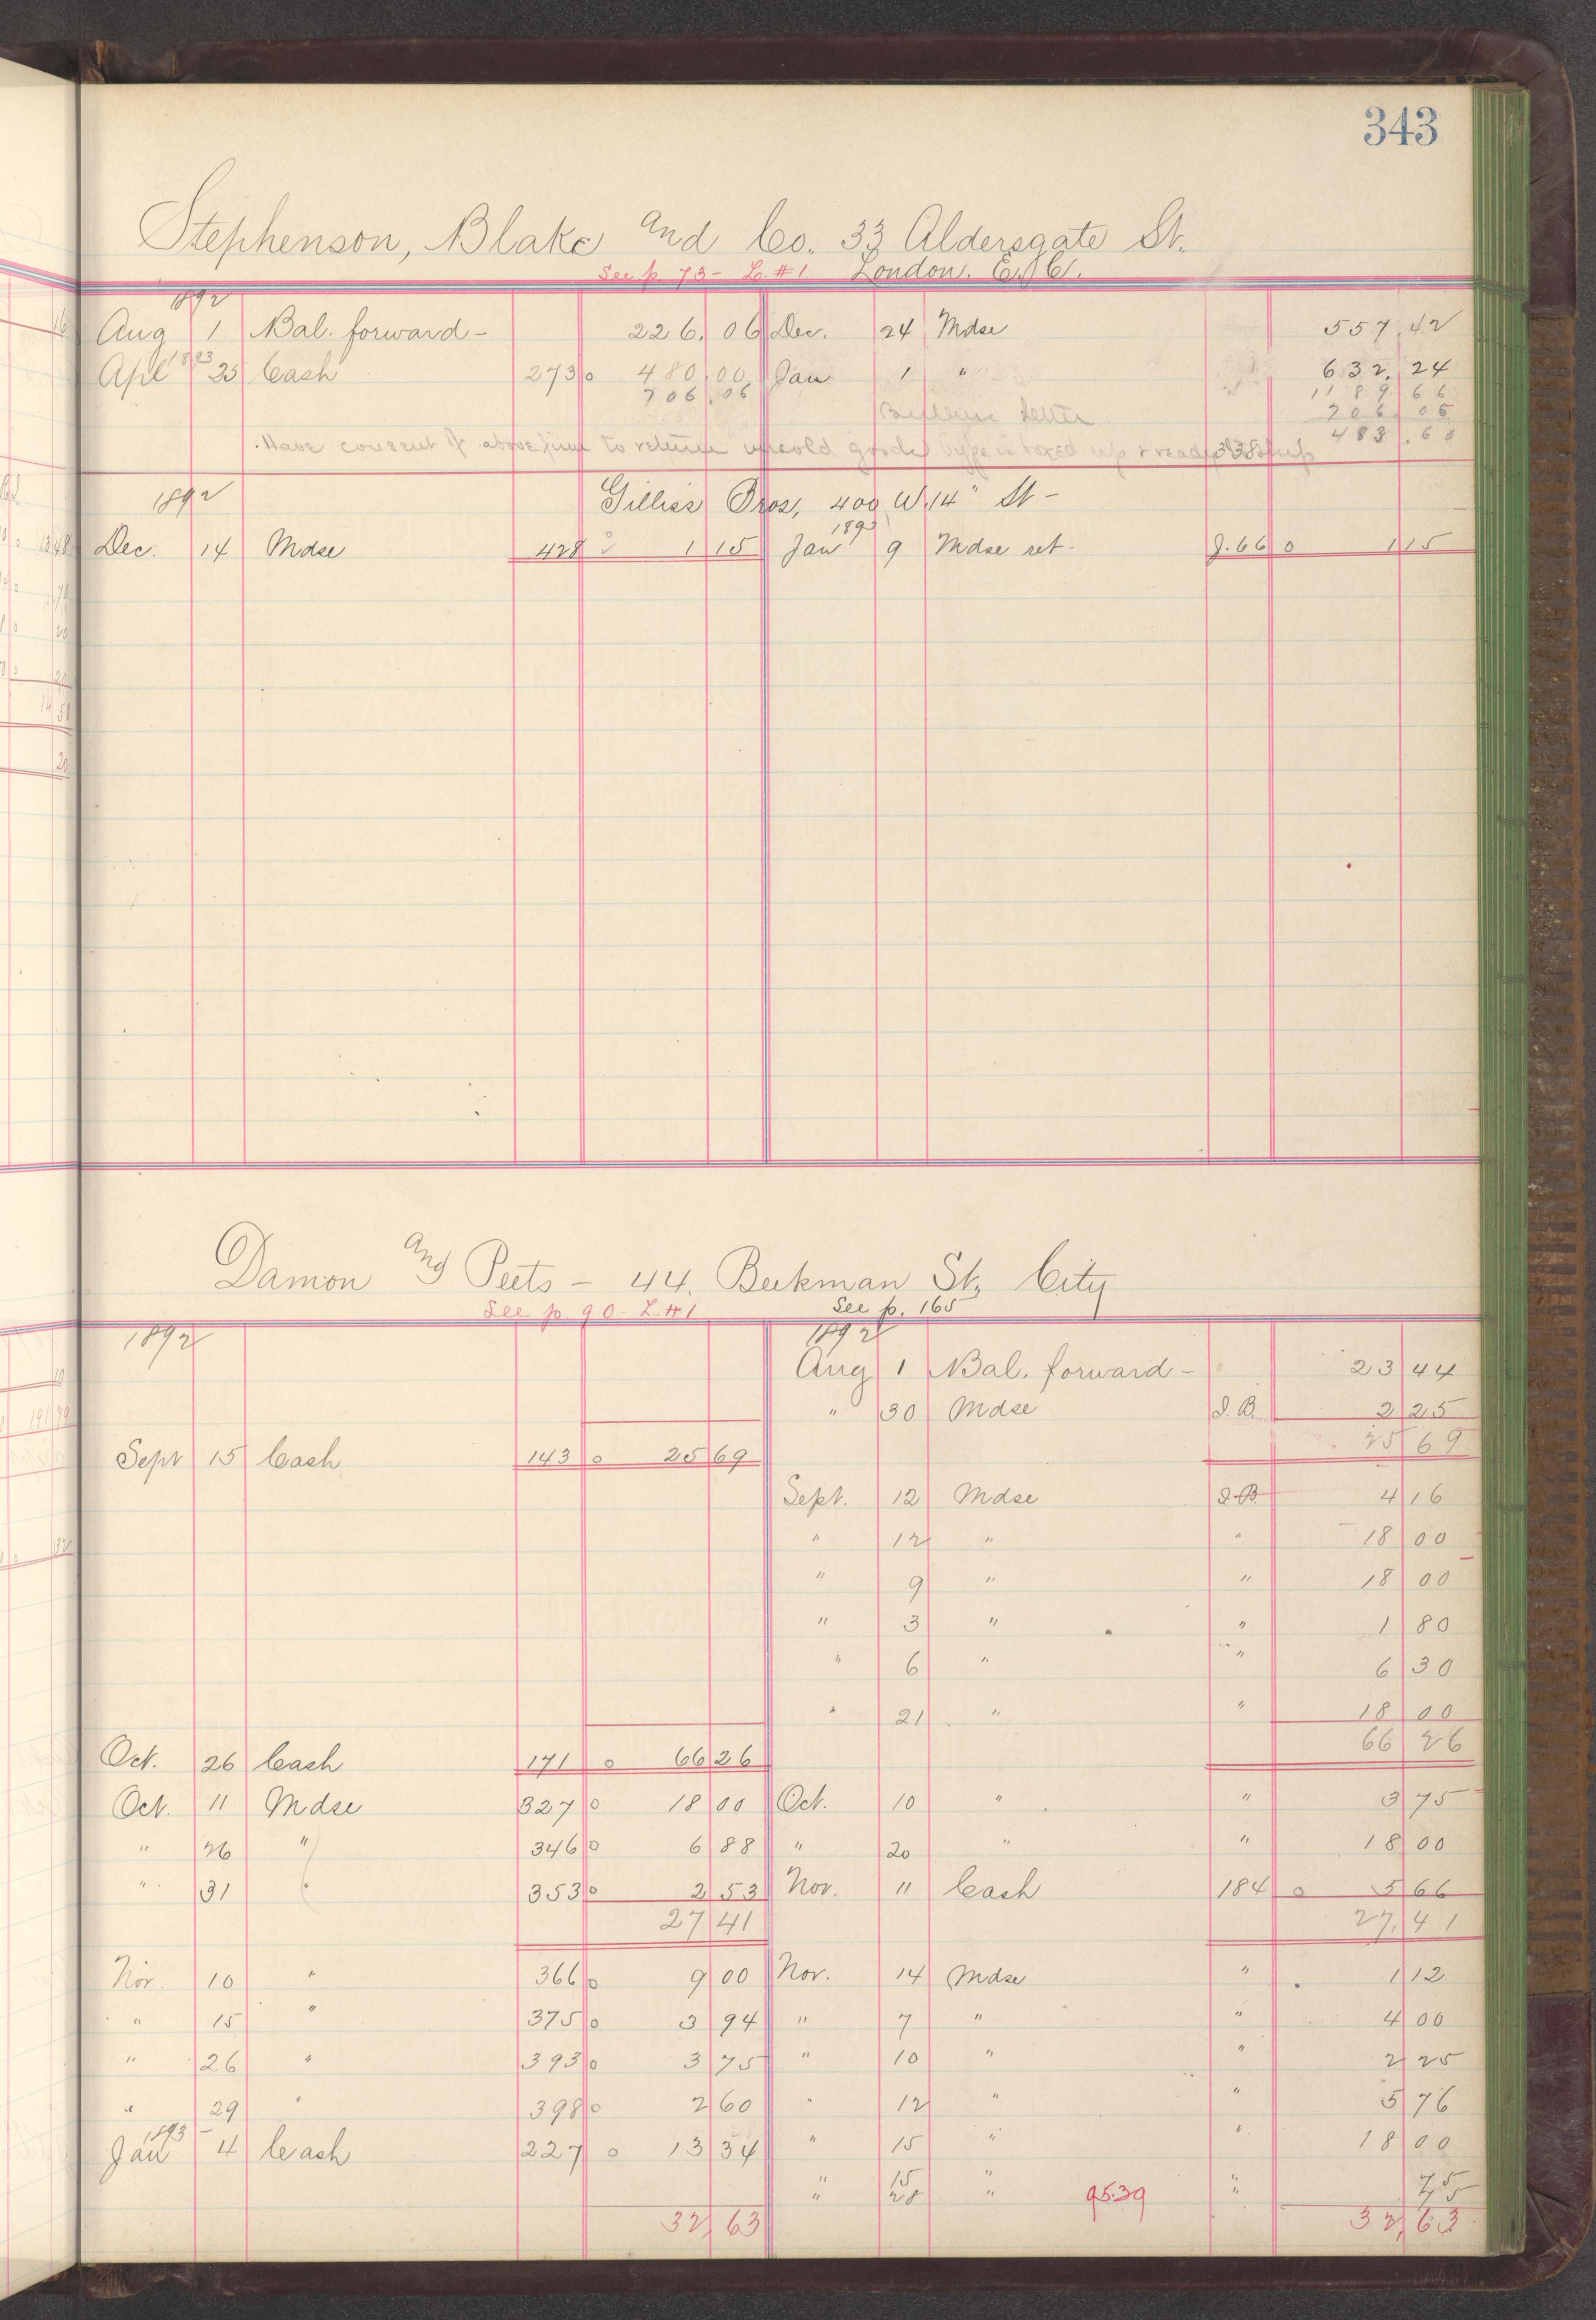 343
Stephenson, Blake and Co. 33 Aldersgate St.
See p. 73 - L. #1 London. E. C.
1892
Aug 1 Bal. forward - 226.06 Dec. 24 Mdse 557.42
1893
Apl 25 Cash 273 0 480.00 Jan 1 " 632.24
706.06 1189 66
706.06
Letter 483.60
Have consent of above firm to return unsold goods Type is boxed up & ready to ship
1892 Gilliss Bros, 400 W. 14" St -
1893
Dec. 14 Mdse 428 1 15 Jan 9 Mdse ret - J. 66 0 1 15
Damon and Peets - 44. Beekman St, City
See p 90 - L. #1 See p. 165
1892 1892
Aug 1 Bal. forward - 23 44
" 30 Mdse I. B. 2 25
25 69
Sept 15 Cash 143 0 25 69
Sept. 12 Mdse I. B. 4 16
" 12 " " 18 00
" 9 " " 18 00
" 3 " " 1 80
" 6 " " 6 30
" 21 " " 18 00
66 26
Oct. 26 Cash 171 0 66 26
Oct. 11 Mdse 327 0 18 00 Oct. 10 " " 3 75
" 26 " 346 0 6 88 " 20 " " 18 00
" 31 " 353 0 2 53 Nov. 11 Cash 184 0 5 66
27 41 27.41
Nov. 10 " 366 0 9 00 Nov. 14 Mdse " 1 12
" 15 " 375 0 3 94 " 7 " " 4 00
" 26 " 393 0 3 75 " 10 " " 2 25
" 29 " 398 0 2 60 " 12 " " 5 76
1893
Jan 4 Cash 227 0 13 34 " 15 " " 18 00
" 15 " " 75
" 28 " 95.39 " 75
32 63 32.63